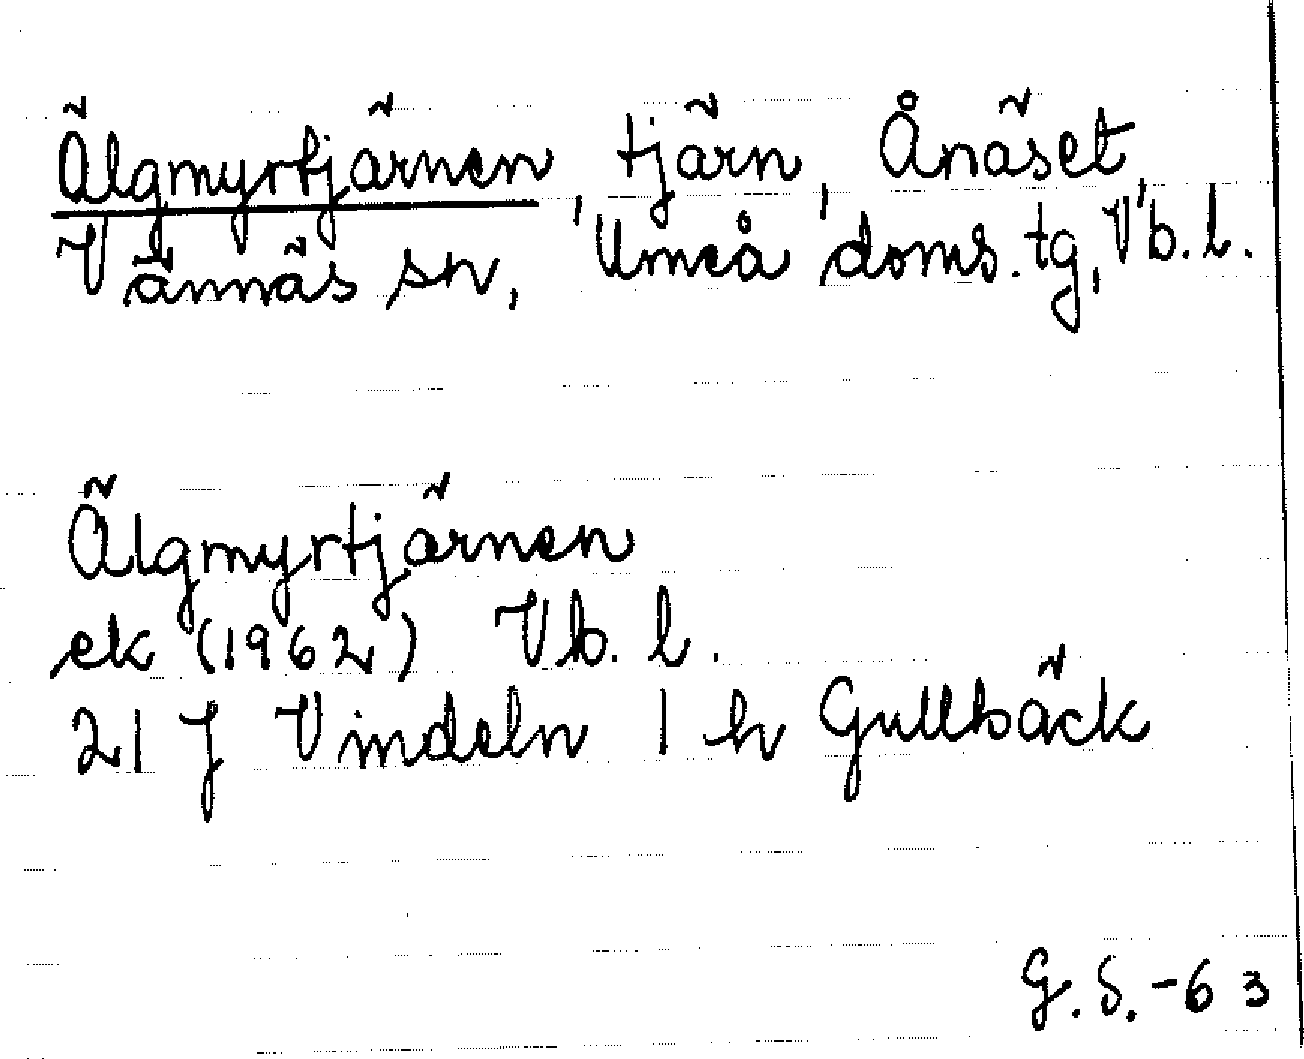 Älgmyrtjärnen, tjärn, Ånäset,
Vännäs sn, Umeå doms. tg, Vb. l.
Älgmyrtjärnen
ek (1962) Vb. l.
21 J Vindeln 1 h Gullbäck
G. S. -63